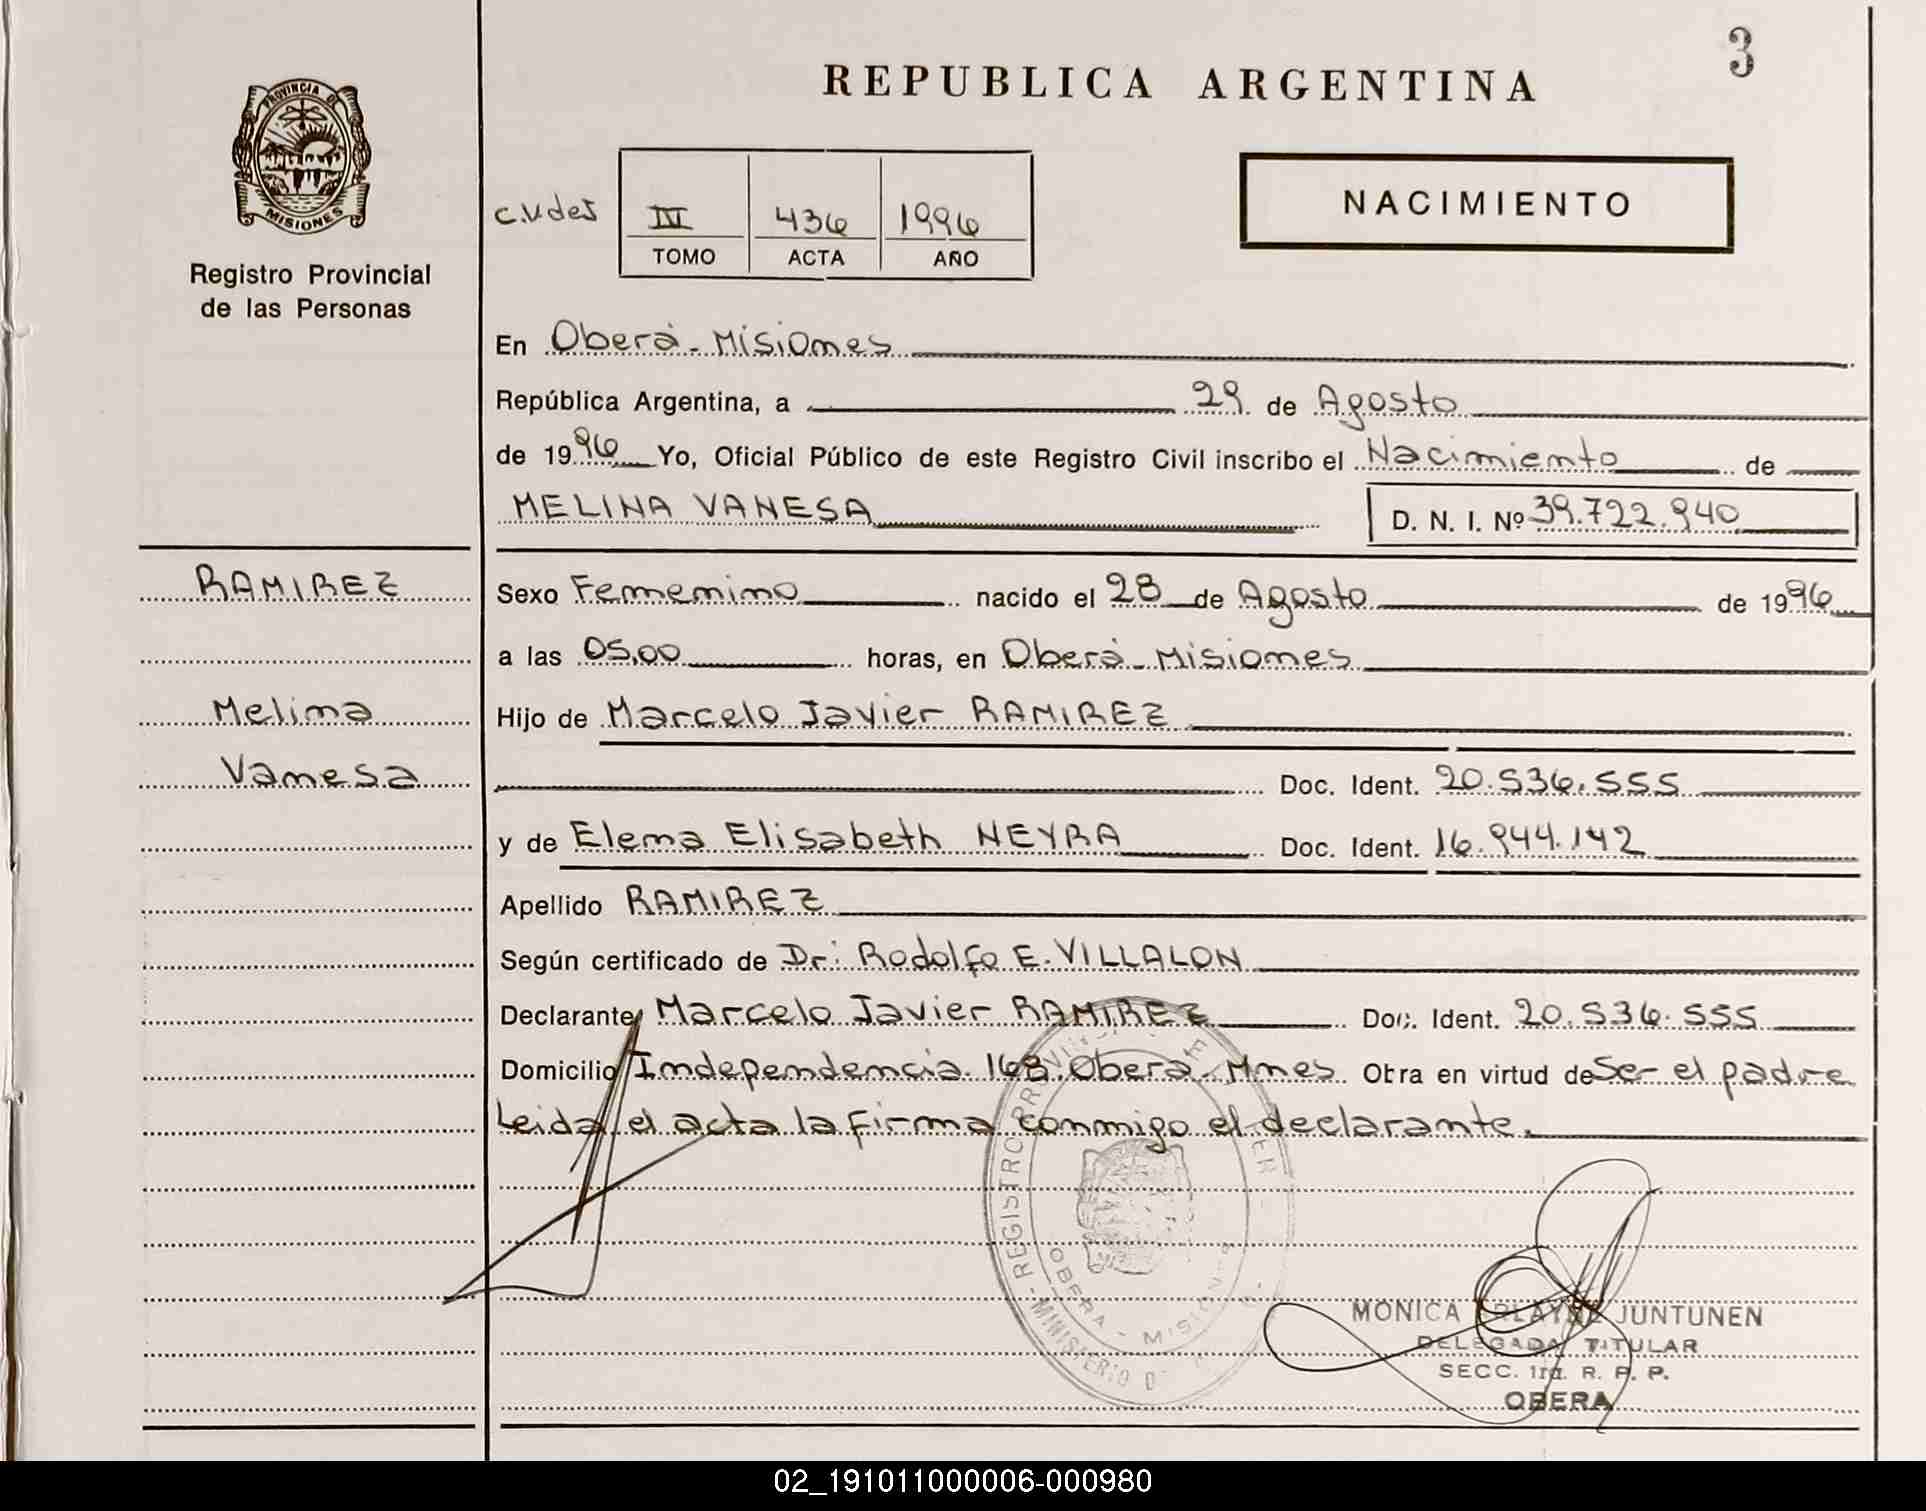 3
REPUBLICA ARGENTINA
PROVINCIA DE
MISIONES
NACIMIENTO
IV 436 1996
TOMO ACTA AÑO
Registro Provincial
de las Personas
En Oberá - Misiones
República Argentina, a 29 de Agosto
de 1996 Yo, Oficial Público de este Registro Civil inscribo el Nacimiento de
MELINA VANESA D. N. I. Nº 39.722.940
RAMIREZ
Melina
Vanesa
Sexo Femenino nacido el 28 de Agosto de 1996
a las 05,00 horas, en Oberá - Misiones
Hijo de Marcelo Javier RAMIREZ
Doc. Ident. 20.536.555
y de Elena Elisabeth NEYRA Doc. Ident. 16.944.142
Apellido RAMIREZ
Según certificado de Dr: Rodolfo E. VILLALON
Declarante Marcelo Javier RAMIREZ Doc. Ident. 20.536.555
Domicilio Independencia 168. Oberá - Mnes Obra en virtud de Ser el padre
Leida el acta la firma conmigo el declarante.
REGISTRO PROVIN
OBERA - MISION
MINISTERIO D
MONICA JUNTUNEN
DELEGADA TITULAR
SECC. 1ra. R. P. P.
OBERA
02_191011000006-000980